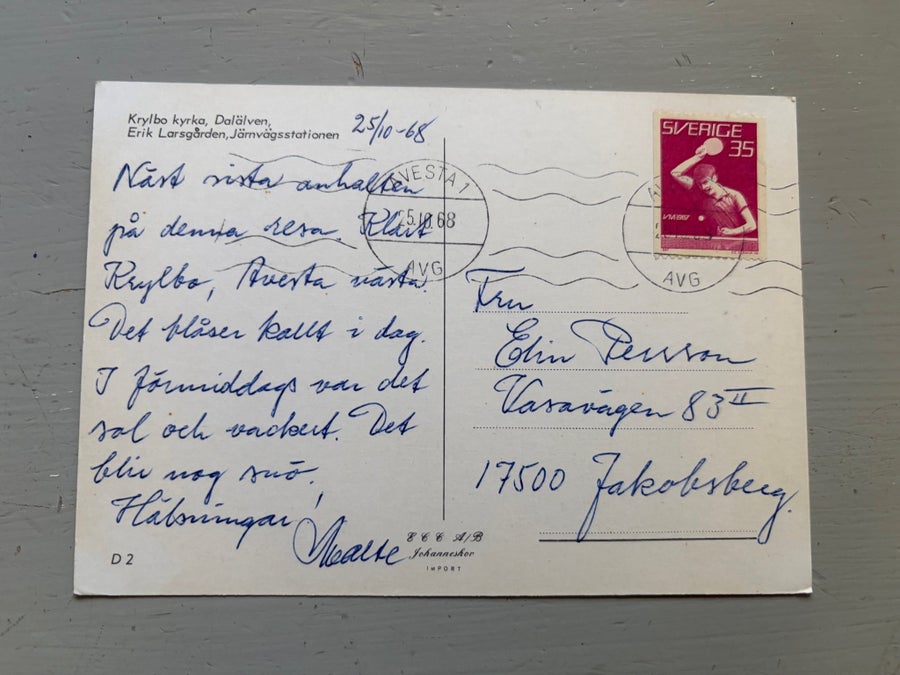 Krylbo kyrka, Dalälven,
Erik Larsgården, Järnvägsstationen
25/10-68
Näst sista anhalten
på denna resa. Klart
Krylbo, Avesta nästa.
Det blåser kallt i dag.
I förmiddags var det
sol och vackert. Det
blir nog snö.
Hälsningar!
Malte
D 2
ECC A/B
Johanneshov
IMPORT
AVESTA 1
25.10.68
AVG
SVERIGE
35
VM 1967
AVG
Fru
Elin Persson
Vasavägen 83 II
17500 Jakobsberg.